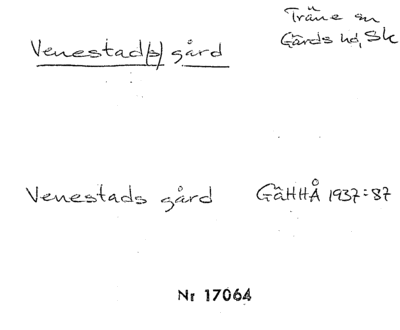 Venestad/s/ gård
Träne sn
Gärds hd, Sk
Venestads gård GäHHÅ 1937:87
Nr 17064